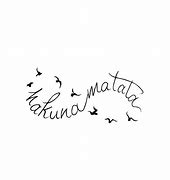 hakuna matata